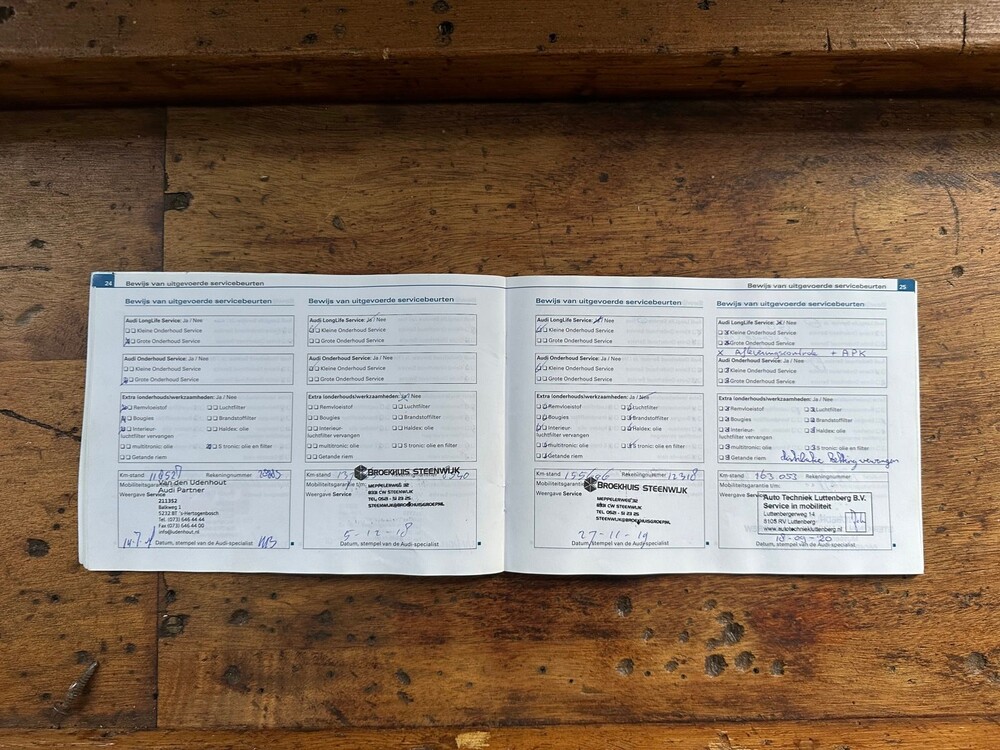 24
Bewijs van uitgevoerde servicebeurten
Bewijs van uitgevoerde servicebeurten
Audi LongLife Service: Ja / Nee
Kleine Onderhoud Service
Grote Onderhoud Service
Audi Onderhoud Service: Ja / Nee
Kleine Onderhoud Service
Grote Onderhoud Service
Extra (onderhouds)werkzaamheden:
Remvloeistof
Luchtfilter
Bougies
Brandstoffilter
Interieur-
luchtfilter vervangen
Haldex: olie
multitronic: olie
S tronic: olie en filter
Getande riem
Km-stand
Rekeningnummer
Mobiliteitsgarantie t/m:
Weergave Service
Van den Udenhout
Audi Partner
211352
Balkweg 1
5232 BT 's-Hertogenbosch
Tel. (073) 646 44 44
Fax (073) 646 44 00
info@udenhout.nl
Datum, stempel van de Audi-specialist
Bewijs van uitgevoerde servicebeurten
Audi LongLife Service: Ja / Nee
Kleine Onderhoud Service
Grote Onderhoud Service
Audi Onderhoud Service: Ja / Nee
Kleine Onderhoud Service
Grote Onderhoud Service
Extra (onderhouds)werkzaamheden: Ja / Nee
Remvloeistof
Luchtfilter
Bougies
Brandstoffilter
Interieur-
luchtfilter vervangen
Haldex: olie
multitronic: olie
S tronic: olie en filter
Getande riem
Km-stand
Mobiliteitsgarantie
Weergave Service
BROEKHUIS STEENWIJK
MEPPELERWEG 32
8331 CW STEENWIJK
TEL. 0521 - 51 23 25
STEENWIJK@BROEKHUISGROEP.NL
5-12-18
Datum, stempel van de Audi-specialist
Bewijs van uitgevoerde servicebeurten
25
Bewijs van uitgevoerde servicebeurten
Audi LongLife Service: Ja / Nee
Kleine Onderhoud Service
Grote Onderhoud Service
Audi Onderhoud Service: Ja / Nee
Kleine Onderhoud Service
Grote Onderhoud Service
Extra (onderhouds)werkzaamheden: Ja / Nee
Remvloeistof
Luchtfilter
Bougies
Brandstoffilter
Interieur-
luchtfilter vervangen
Haldex: olie
multitronic: olie
S tronic: olie en filter
Getande riem
Km-stand 155606 Rekeningnummer 12318
Mobiliteitsgarantie
Weergave Service
BROEKHUIS STEENWIJK
MEPPELERWEG 32
8331 CW STEENWIJK
TEL. 0521 - 51 23 25
STEENWIJK@BROEKHUISGROEP.NL
27-11-19
Datum, stempel van de Audi-specialist
Bewijs van uitgevoerde servicebeurten
Audi LongLife Service: Ja / Nee
Kleine Onderhoud Service
Grote Onderhoud Service
x Afleveringscontrole + APK
Audi Onderhoud Service: Ja / Nee
Kleine Onderhoud Service
Grote Onderhoud Service
Extra (onderhouds)werkzaamheden: Ja / Nee
Remvloeistof
Luchtfilter
Bougies
Brandstoffilter
Interieur-
luchtfilter vervangen
Haldex: olie
multitronic: olie
S tronic: olie en filter
Getande riem
Km-stand 163.053 Rekeningnummer
Mobiliteitsgarantie t/m:
Weergave Service
Auto Techniek Luttenberg B.V.
Service in mobiliteit
Luttenbergerweg 14
8105 RV Luttenberg
www.autotechniekluttenberg.nl
18-09-20
Datum, stempel van de Audi-specialist